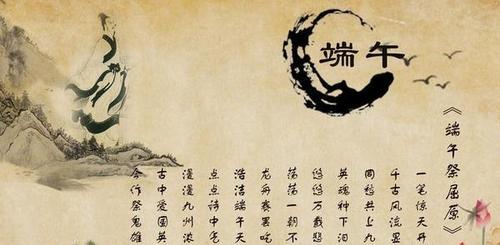 端午
《端午祭屈原》
一笔惊天丹
千古风流墨
同愁共上九
英魂神下泪
悠悠万载
荡荡一朝不
龙舟赛罢
浩洁端午天
点点诗中
漫漫九州浓
古中爱国英
合作祭鬼雄